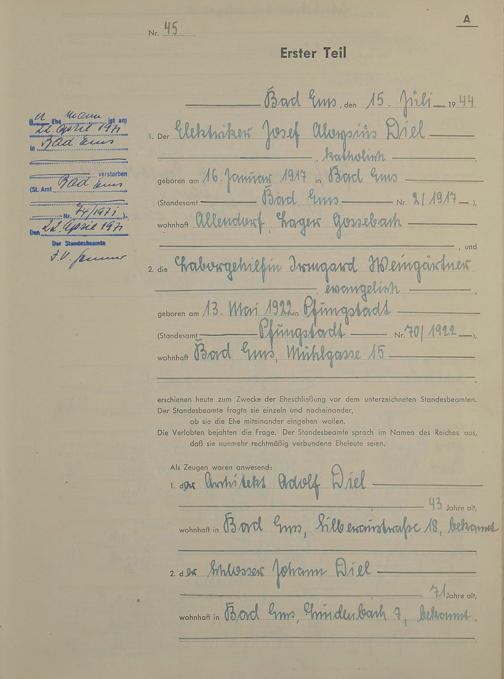 A
Nr. 45
Erster Teil
Bad Ems, den 15. Juli 1944
1. Der Elektriker Josef Aloysius Diel
, katholisch
geboren am 16. Januar 1917 in Bad Ems
(Standesamt Bad Ems Nr. 2/1917),
wohnhaft Allendorf, Lager Gossebach
, und
2. die Laborgehilfin Irmgard Weingärtner
evangelisch
geboren am 13. Mai 1922 in Pfungstadt
(Standesamt Pfungstadt Nr. 70/1922),
wohnhaft Bad Ems, Mühlgasse 15
erschienen heute zum Zwecke der Eheschließung vor dem unterzeichneten Standesbeamten.
Der Standesbeamte fragte sie einzeln und nacheinander,
ob sie die Ehe miteinander eingehen wollen.
Die Verlobten bejahten die Frage. Der Standesbeamte sprach im Namen des Reiches aus,
daß sie nunmehr rechtmäßig verbundene Eheleute seien.
Als Zeugen waren anwesend:
1. der Architekt Adolf Diel
43 Jahre alt,
wohnhaft in Bad Ems, Silberaustraße 18, bekannt
2. der Schlosser Johann Diel
71 Jahre alt,
wohnhaft in Bad Ems, Lindenbach 7, bekannt.
Ehemann ist am
21. April 1971
in Bad Ems
verstorben
(St. Amt Bad Ems
Nr. 74/1971),
Den 22. April 1971
Der Standesbeamte